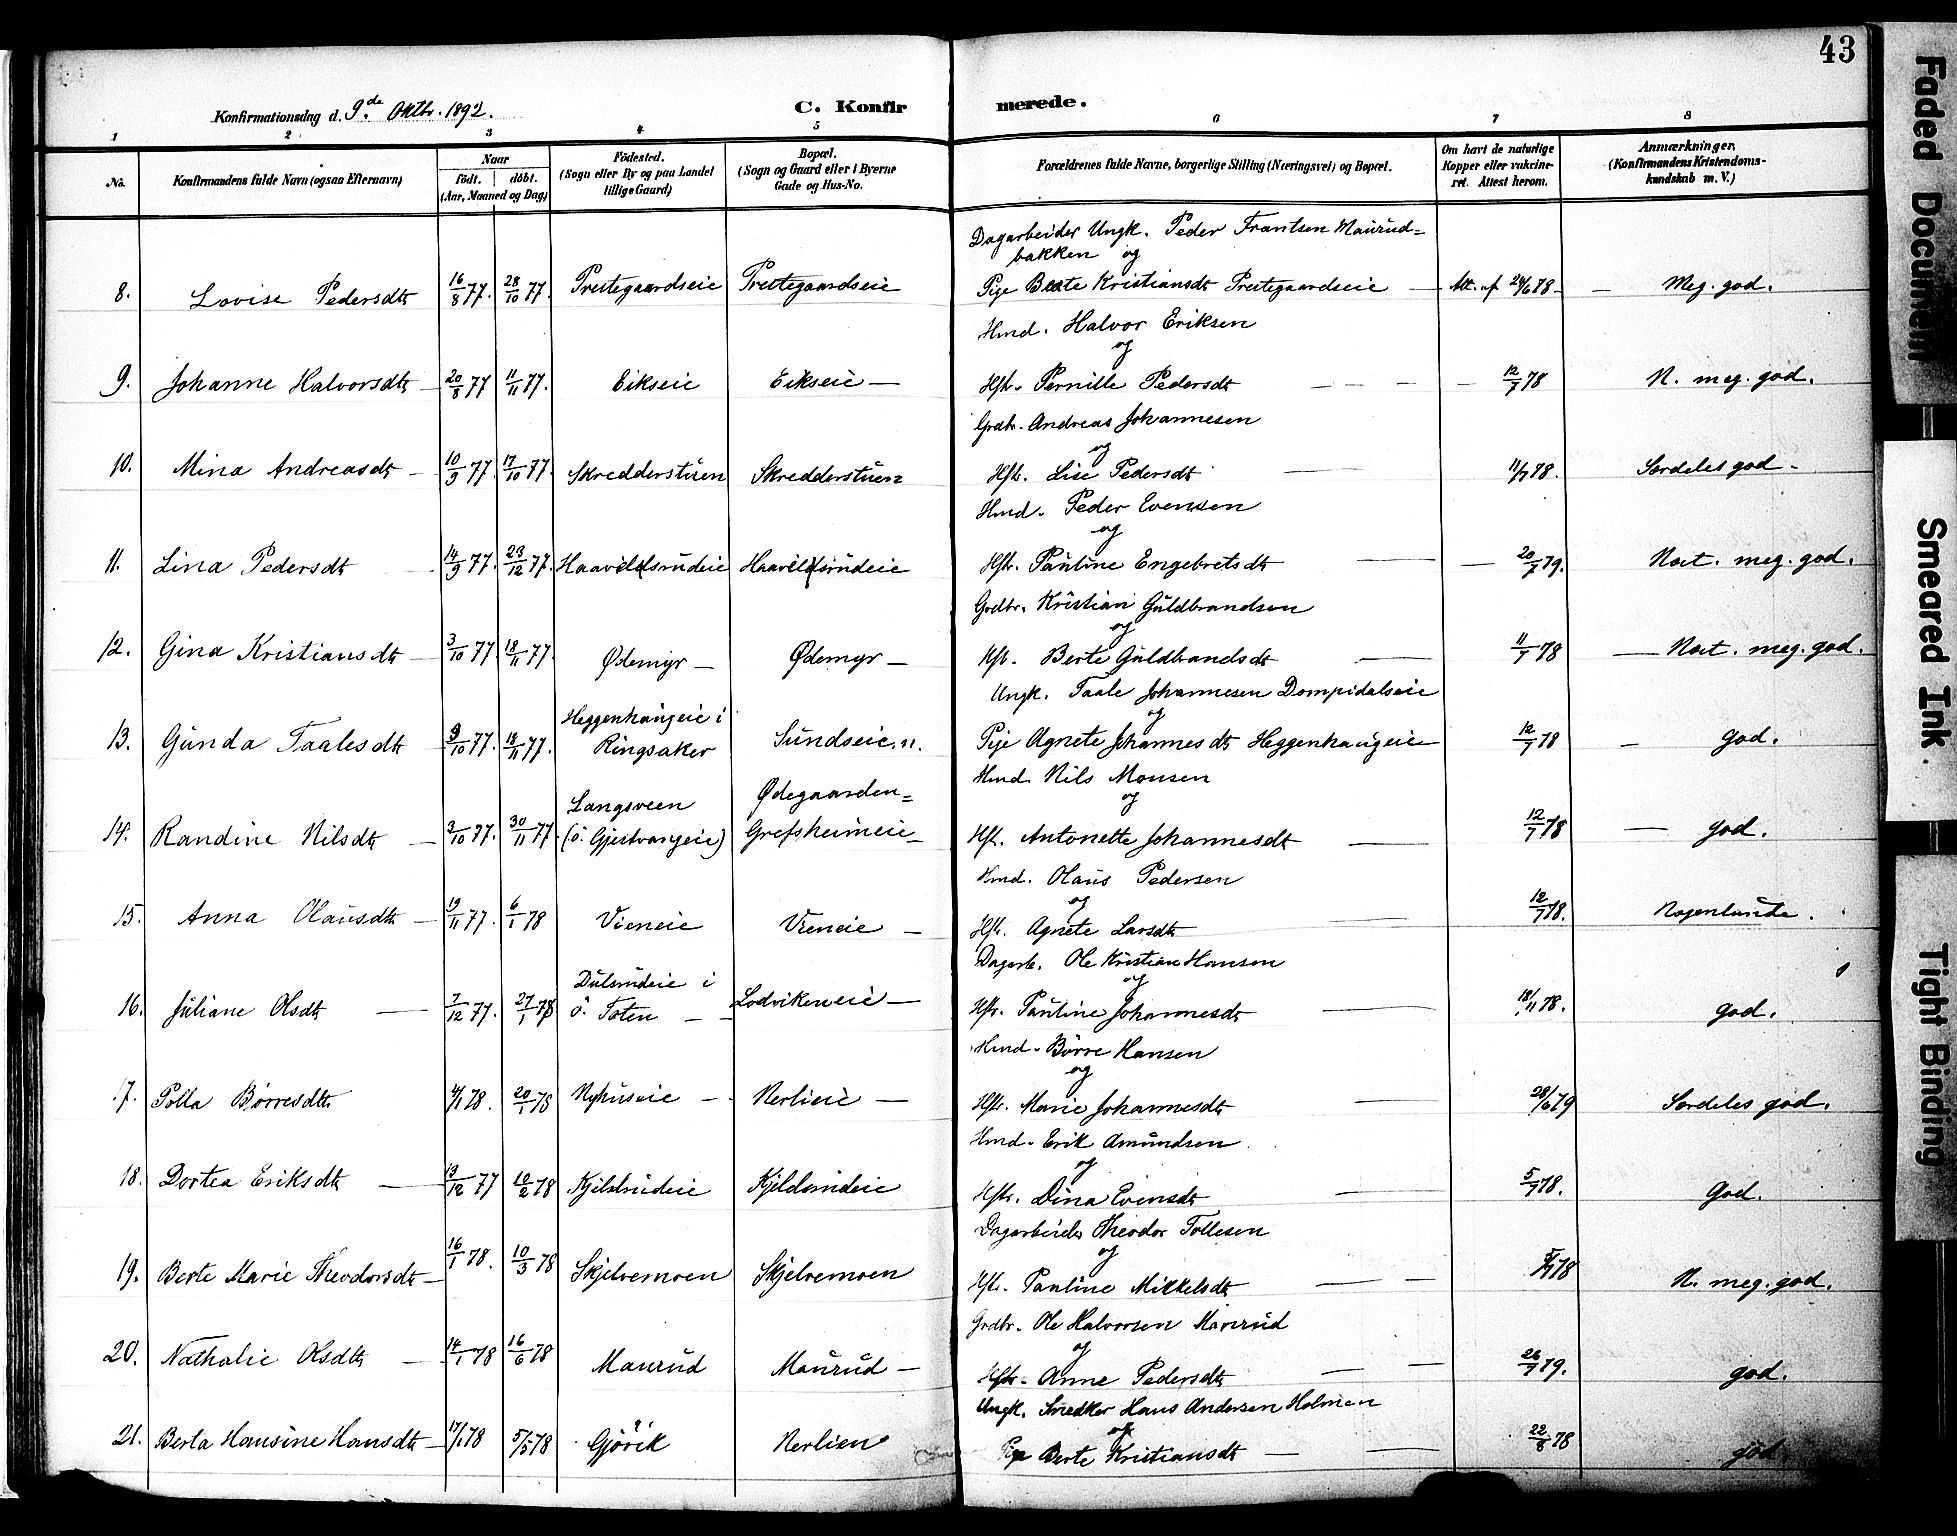 43
Konfirmationsdag d. 9de Oktbr. 1892.
C. Konfirmerede.
1 2 3 4 5 6 7 8
No.
Konfirmandens fulde Navn (ogsaa Efternavn)
Naar
født. døbt.
(Aar, Maaned og Dag)
Födested.
(Sogn eller By og paa Landet
tillige Gaard)
Bopæl.
(Sogn og Gaard eller i Byerne
Gade og Hus-No.
Forældrenes fulde Navne, borgerlige Stilling (Næringsvei) og Bopæl.
Om havt de naturlige
Kopper eller vakcine-
ret. Attest herom.
Anmærkninger.
(Konfirmandens Kristendoms-
kundskab m. V.)
Dagarbeider Ungk. Peder Frantsen Maurud=
bakken og
8. Lovise Pedersdtr 16/8 77. 28/10 77. Prestegaardseie Prestegaardseie Pige Beate Kristiansdtr Prestegaardseie — Att. af 24/6 78 — Meg. god.
Hmd. Halvor Eriksen
og
9. Johanne Halvorsdtr — 20/8 77 11/11 77. Eikseie Eikseie — Hstr. Pernille Pedersdtr — — — 12/7 78 N. meg. god.
Grdbr. Andreas Johannesen
og
10. Mina Andreasdtr — 10/9 77 17/10 77. Skredderstuen Skredderstuen Hstr. Lise Pedersdtr — 11/7 78. Særdeles god.
Hmd. Peder Evensen
og
11. Lina Pedersdtr — 14/9 77. 23/12 77. Haaveldsrudeie Haaveldsrudeie Hstr. Pauline Engebretsdtr — — 20/7 79. Nært. meg. god.
Grdbr. Kristian Guldbrandsen
og
12. Gina Kristiansdtr — 3/10 77. 18/11 77. Ødemyr — Ødemyr — Hstr. Berte Guldbrandsdtr — 11/7 78 — Nært. meg. god.
Ungk. Taale Johannesen Dompidalseie
og
Heggenhaugeie i
13. Gunda Taalesdtr 9/10 77. 18/11 77. Ringsaker Sundseie. n. Pige Agnete Johannesdtr Heggenhaugeie 12/7 78 — god.
Hmd. Nils Monsen
og
Langsveen Ødegaarden=
14. Randine Nilsdtr — 2/10 77. 30/11 77 (ö. Gjestvangeie) Grefsheimeie — Hstr. Antonette Johannesdtr — 12/7 78 — god.
Hmd. Olaus Pedersen
og
15. Anna Olausdtr — 19/11 77. 6/1 78 Vieneie Vieneie — Hstr. Agnete Larsdtr — 12/7 78. Nogenlunde.
Dagarb. Ole Kristian Hansen
og
Dulsrudeie i
16. Juliane Olsdtr — 7/12 77. 27/1 78 Ö. Toten — — Lodvikeneie — Hstr. Pauline Johannesdtr — 18/11 78. god.
Hmd. Börre Hansen
og
17. Polla Börresdtr 4/1 78. 20/1 78 Nyhuseie — Nerlieie — Hstr. Marie Johannesdtr — 28/6 79 Særdeles god.
Hmd. Erik Amundsen
og
18. Dortea Eriksdtr — 19/12 77 10/2 78 Kjelsrudeie Kjeldsrudeie Hstr. Dina Evensdtr — 5/7 78. God.
Dagarbeider Theodor Tollesen
og
19. Berte Marie Theodorsdtr — 16/1 78. 10/3 78 Skjelvemoen Skjelvemoen Hstr. Pauline Mikkelsdtr — — 5/7 78 N. meg. god.
Grdbr. Ole Halvorsen Maurud
og
20. Nathalie Olsdtr — 14/1 78 16/6 78 Maurud Maurud — Hstr. Anne Pedersdtr — — 26/7 79. god.
Ungk. Snedker Hans Andersen Holmen
og
21. Berta Hansine Hansdtr — 17/1 78 5/5 78 Gjövik Nerlien Pige Berte Kristiansdtr — — 22/8 78 god.
Faded Document
Smeared Ink.
Tight Binding